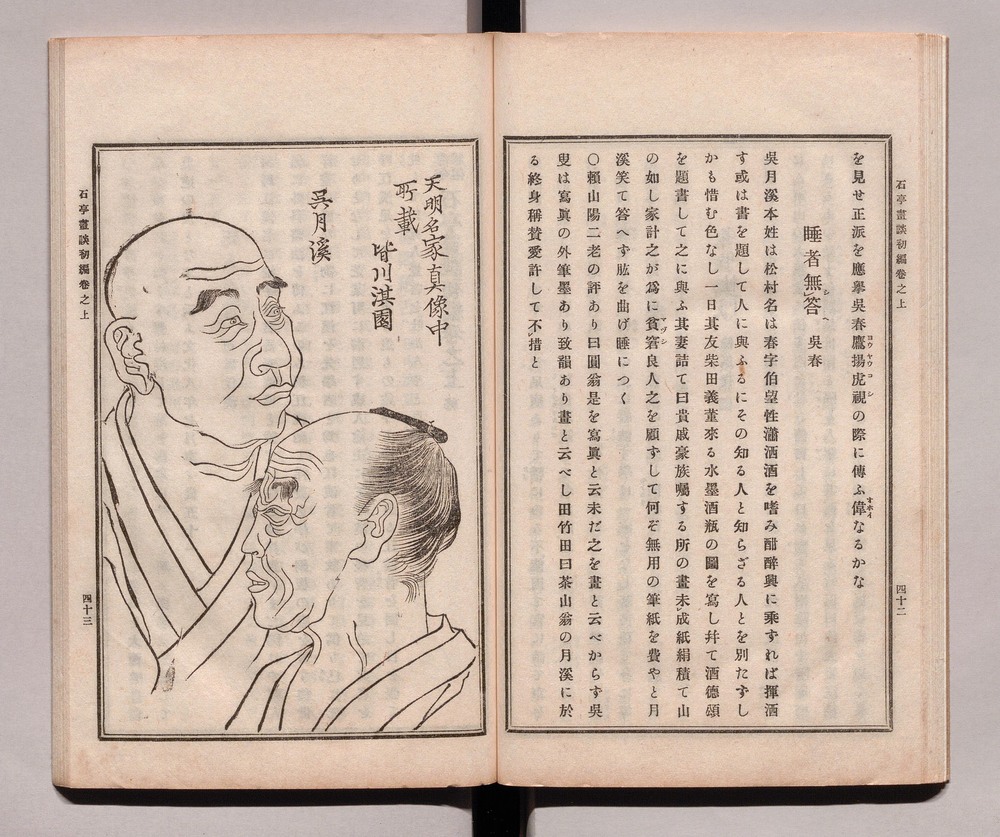 石亭畫談初編卷之上
四十二
を見せ正派を應擧吳春鷹揚虎視の際に傳ふ偉なるかな
ヨウヤウコシ
すホイ
睡者無答 吳春
シ
吳月溪本姓は松村名は春字伯望性瀟洒酒を嗜み酣醉興に乘ずれば揮洒
す或は書を題して人に與ふるにその知る人と知らざる人とを別たずし
かも惜む色なし一日其友柴田義董來る水墨酒瓶の圖を寫し幷て酒德頌
を題書して之に與ふ其妻詰て曰貴戚豪族囑する所の畫未成紙絹積て山
の如し家計之が爲に貧窘良人之を顧ずして何ぞ無用の筆紙を費やと月
マヅシ
溪笑て答へず肱を曲げ睡につく
○賴山陽二老の評あり曰圓翁是を寫眞と云未だ之を畫と云べからず吳
叟は寫眞の外筆墨あり致韻あり畫と云べし田竹田曰茶山翁の月溪に於
る終身稱賛愛許して不措と
天明名家真像中
所載
皆川淇園
吳月溪
石亭畫談初編卷之上
四十三